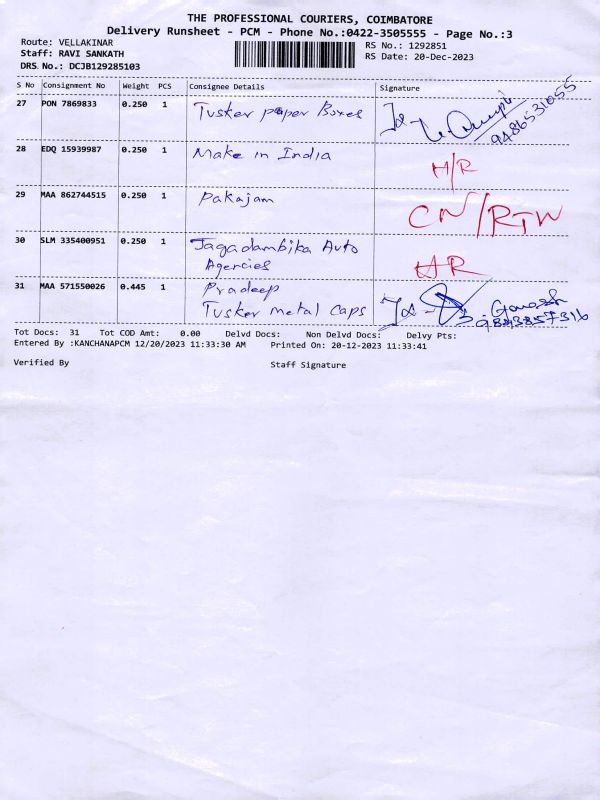 THE PROFESSIONAL COURIERS, COIMBATORE
Delivery Runsheet - PCM - Phone No.:0422-3505555 - Page No.:3
Route: VELLAKINAR RS No.: 1292851
Staff: RAVI SANKATH RS Date: 20-Dec-2023
DRS No.: DCJB129285103
S No Consignment No Weight PCS Consignee Details Signature
27 PON 7869833 0.250 1 Tusker paper Boxes 9486531055
28 EDQ 15939987 0.250 1 Make in India H/R
29 MAA 862744515 0.250 1 Pakajam CN/RTW
30 SLM 335400951 0.250 1 Jagadambika Auto
Agencies HR
31 MAA 571550026 0.445 1 Pradeep
Tusker metal caps Ganesh
9843857316
Tot Docs: 31 Tot COD Amt: 0.00 Delvd Docs: Non Delvd Docs: Delvy Pts:
Entered By :KANCHANAPCM 12/20/2023 11:33:30 AM Printed On: 20-12-2023 11:33:41
Verified By Staff Signature